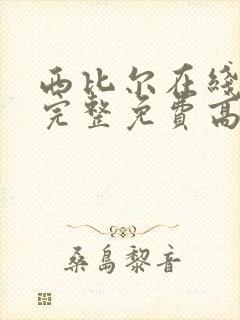 西比尔在綫
完整免費高
桑島黎音